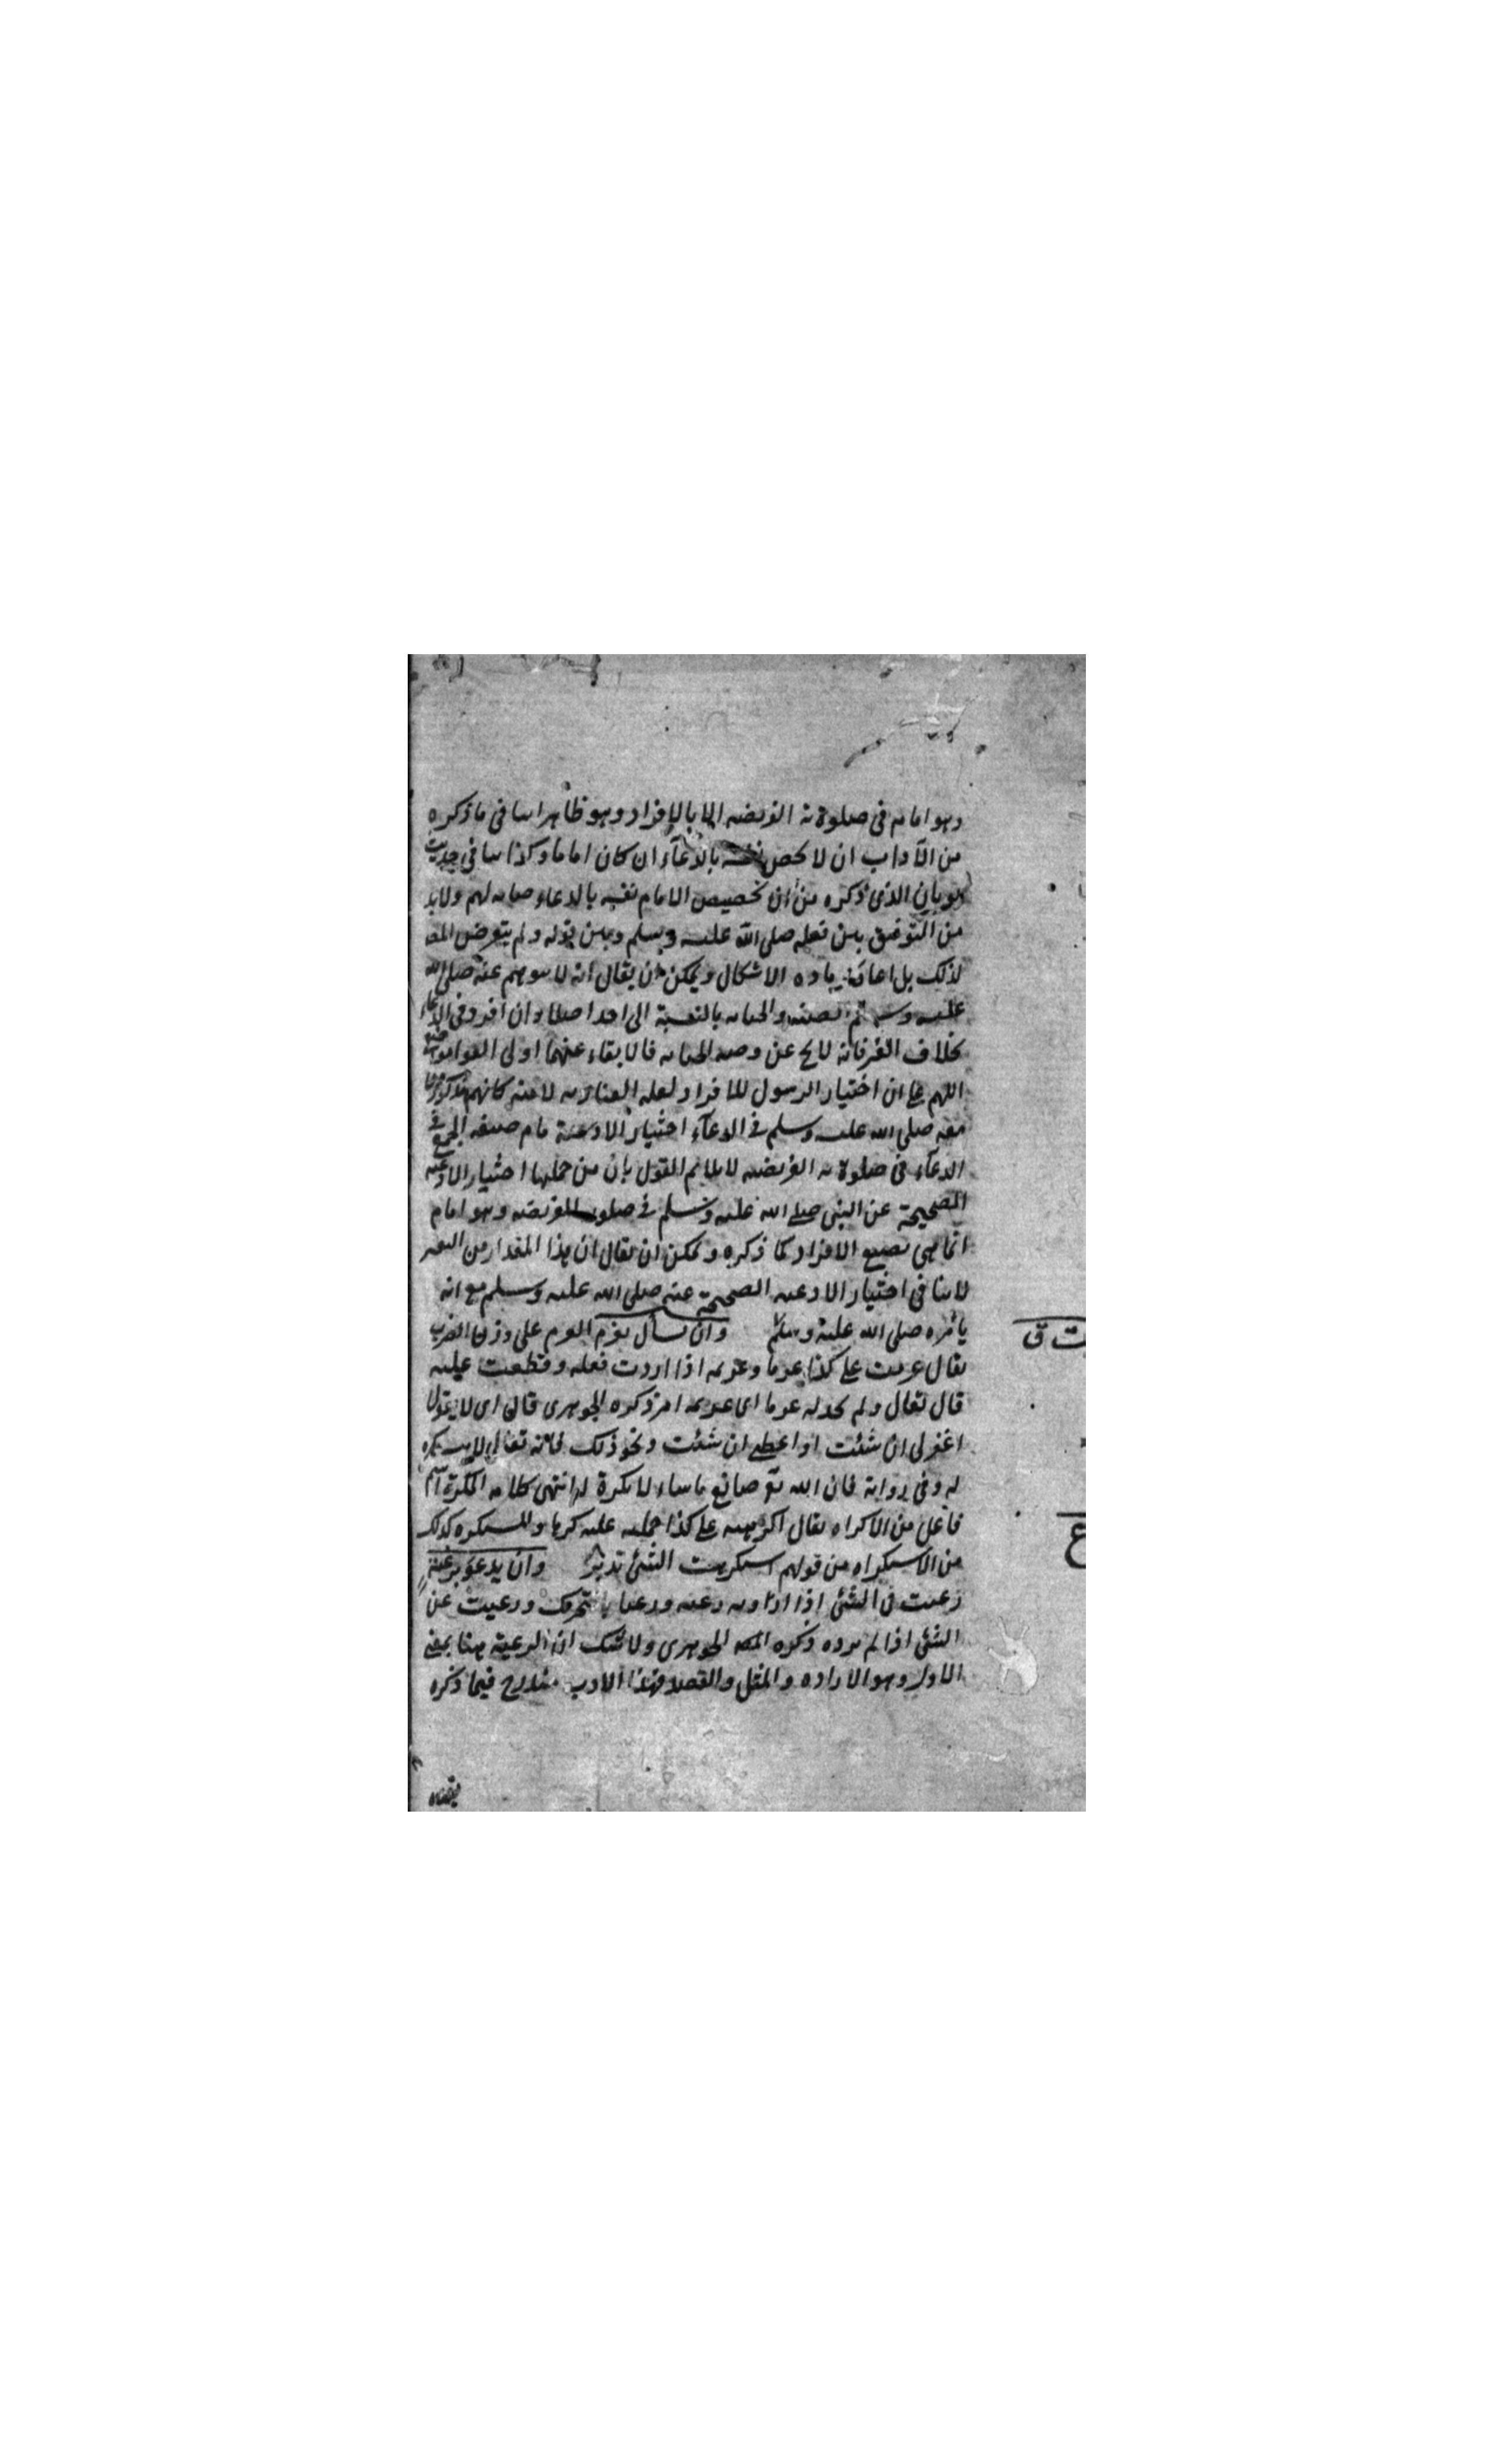 وهو امام فى صلوة الفريضه انما بالافراد وهو ظاهرا ينافى ما ذكره
من الآداب ان لا يخص نفسه بالدعآء ان كان اماما وكذا ينافى حديث
ثوبان الذى ذكره من ان تخصيص الامام نفسه بالدعاء خيانه لهم ولابد
من التوفيق بين فعله صلى الله عليه وسلم وبين قوله ولم يتعرض المص
لذلك بل زياده الاشكال ويمكن ان يقال انه لا يتوهم عنه صلى الله
عليه وسلم والخيانه بالنسبة الى احد اصلا وان افرد فى الدعاء
بخلاف الغير فانه عن وصمه الخيانه فالابقاء عنهما اولى
اللهم على ان اختيار الرسول للافراد لامته كانهم
معه صلى الله عليه وسلم فى الدعآء اختيار الادعية صيغه الجمع فى
الدعآء فى صلوة الفريضه لا يلايم القول بان من جملها اختيار الادعيه
الصحيحة عن النبى صلى الله عليه وسلم فى صلوة الفريضه وهو امام
انما هى بصيغ الافراد كما ذكره ويمكن ان يقال ان هذا المقدار من التغير
لا ينافى اختيار الادعيه الصحيحة عنه صلى الله عليه وسلم مع انه
يأمره صلى الله عليه وسلم وان يسأل بعزم العزم على وزن الضرب
يقال عزمت على كذا عزما وعزيمه اذا اردت فعله وقطعت عليه
قال تعالى ولم نجد له عزما اى عزيمه امر ذكره الجوهرى قال اى لا يقول
اغفر لى ان شئت او اعطى ان شئت ونحو ذلك فانه تعالى لا مستكره
له وفى رواية فان الله تع صانع ما شاء لا مكرة له انتهى كلامه المكرة اسم
فاعل من الاكراه يقال اكرهته على كذا حملته عليه كرها والمستكره كذلك
من الاستكراه من قولهم استكرهت الشئ تدبر وان يدعو برغبة
رغبت فى الشئ اذا اردته رغبه ورغبا بالتحريك ورغبت عن
الشئ اذا لم ترده ذكره الجوهرى ولا شك ان الرغبة هنا بمعنى
الاول وهو الاراده والميل والقصد فهذا الادب مندرج فيما ذكره